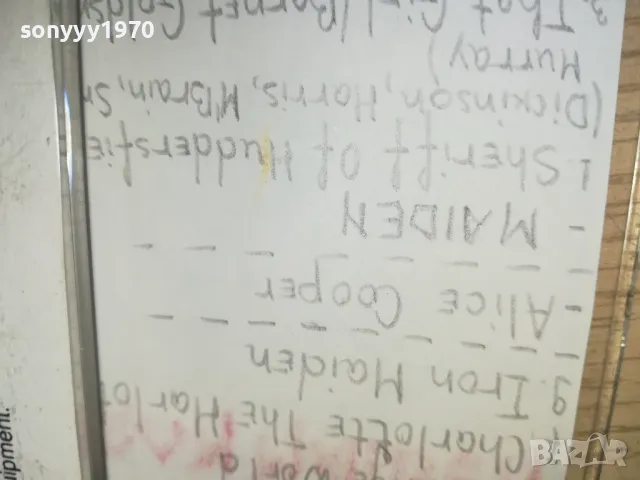 sonyyy1970
World
Charlotte The Harlot
9. Iron Maiden
- Alice Cooper
- MAIDEN
1. Sheriff Of Huddersfie
(Dickinson, Harris, M'Brain, Sm
Murray)
3. That Girl (Barnet Golds
uipment.
BAZAR